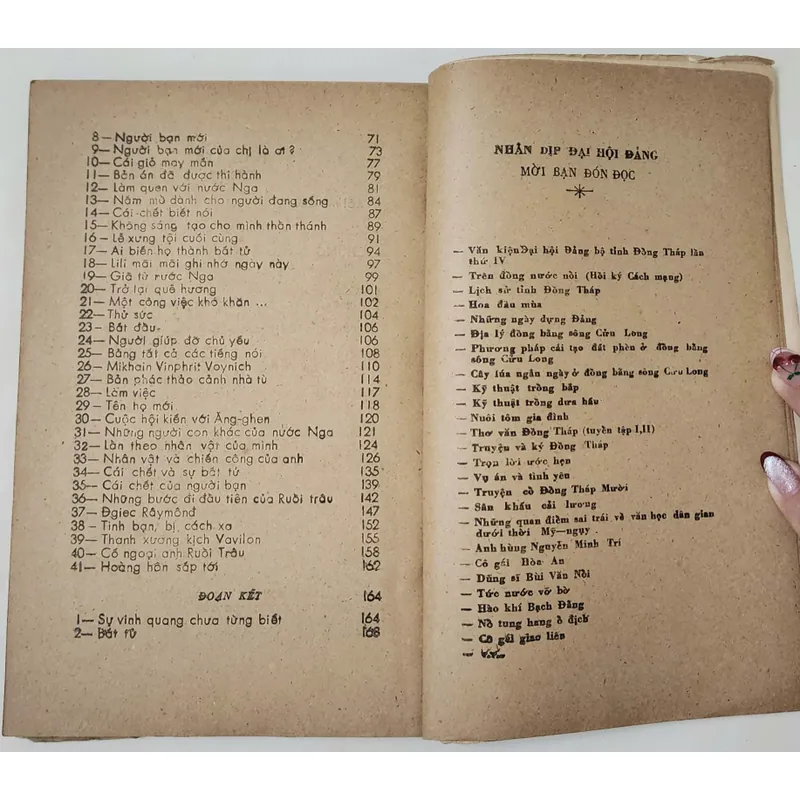 8— Người bạn mới 71
9— Người bạn mới của chị là ai? 73
10— Cái giỏ may mắn 77
11— Bản án đã được thi hành 79
12— Làm quen với nước Nga 81
13— Nấm mồ dành cho người đang sống 84
14— Cái chết biết nói 87
15— Không sáng tạo cho mình thần thánh 89
16— Lễ xưng tội cuối cùng 91
17— Ai biến họ thành bất tử 94
18— Lili mãi mãi ghi nhớ ngày này 97
19— Giã từ nước Nga 99
20— Trở lại quê hương 101
21— Một công việc khó khăn ... 102
22— Thử sức 104
23— Bắt đầu 106
24— Người giúp đỡ chủ yếu 106
25— Bằng tất cả các tiếng nói 108
26— Mikhain Vinphrit Voynich 110
27— Bản phác thảo cảnh nhà tù 114
28— Làm việc 117
29— Tên họ mới 118
30— Cuộc hội kiến với Ăng-ghen 120
31— Những người con khác của nước Nga 121
32— Lần theo nhân vật của mình 124
33— Nhân vật và chiến công của anh 126
34— Cái chết và sự bất tử 135
35— Cái chết của người bạn 139
36— Những bước đi đầu tiên của Ruồi trâu 142
37— Đgiec Râymônđ 147
38— Tình bạn, bị, cách xa 152
39— Thanh xương kịch Vavilon 155
40— Cố ngoại anh Ruồi Trâu 158
41— Hoàng hôn sắp tới 162
ĐOẠN KẾT 164
1— Sự vinh quang chưa từng biết 164
2— Bất tử 168
NHÂN DỊP ĐẠI HỘI ĐẢNG
MỜI BẠN ĐÓN ĐỌC
— Văn kiện Đại hội Đảng bộ tỉnh Đồng Tháp lần
thứ IV
— Trên đồng nước nổi (Hồi ký Cách mạng)
— Lịch sử tỉnh Đồng Tháp
— Hoa đầu mùa
— Những ngày dựng Đảng
— Địa lý đồng bằng sông Cửu Long
— Phương pháp cải tạo đất phèn ở đồng bằng
sông Cửu Long
— Cây lúa ngắn ngày ở đồng bằng sông Cửu Long
— Kỹ thuật trồng bắp
— Kỹ thuật trồng dưa hấu
— Nuôi tôm gia đình
— Thơ văn Đồng Tháp (tuyển tập I,II)
— Truyện và ký Đồng Tháp
— Trọn lời ước hẹn
— Vụ án và tình yêu
— Truyện cổ Đồng Tháp Mười
— Sân khấu cải lương
— Những quan điểm sai trái về văn học dân gian
dưới thời Mỹ—ngụy
— Anh hùng Nguyễn Minh Trí
— Cô gái Hòa An
— Dũng sĩ Bùi Văn Nồi
— Tức nước vỡ bờ
— Hào khí Bạch Đằng
— Nổ tung hang ổ địch
— Cô gái giao liên
— v.v..